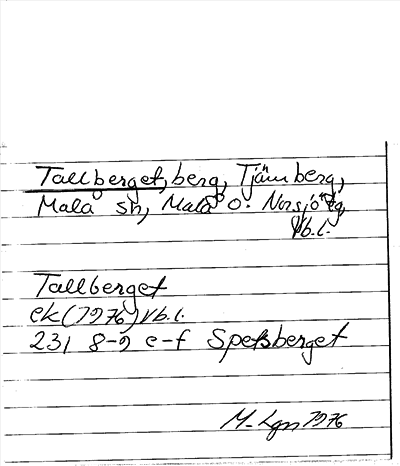 Tallberget, berg, Tjämberg,
Malå sn, Malå o. Norsjö tg
Vb.l.
Tallberget
ek (1976) Vb.l.
231 8-9 e-f Spetsberget
M. Lgn 1976